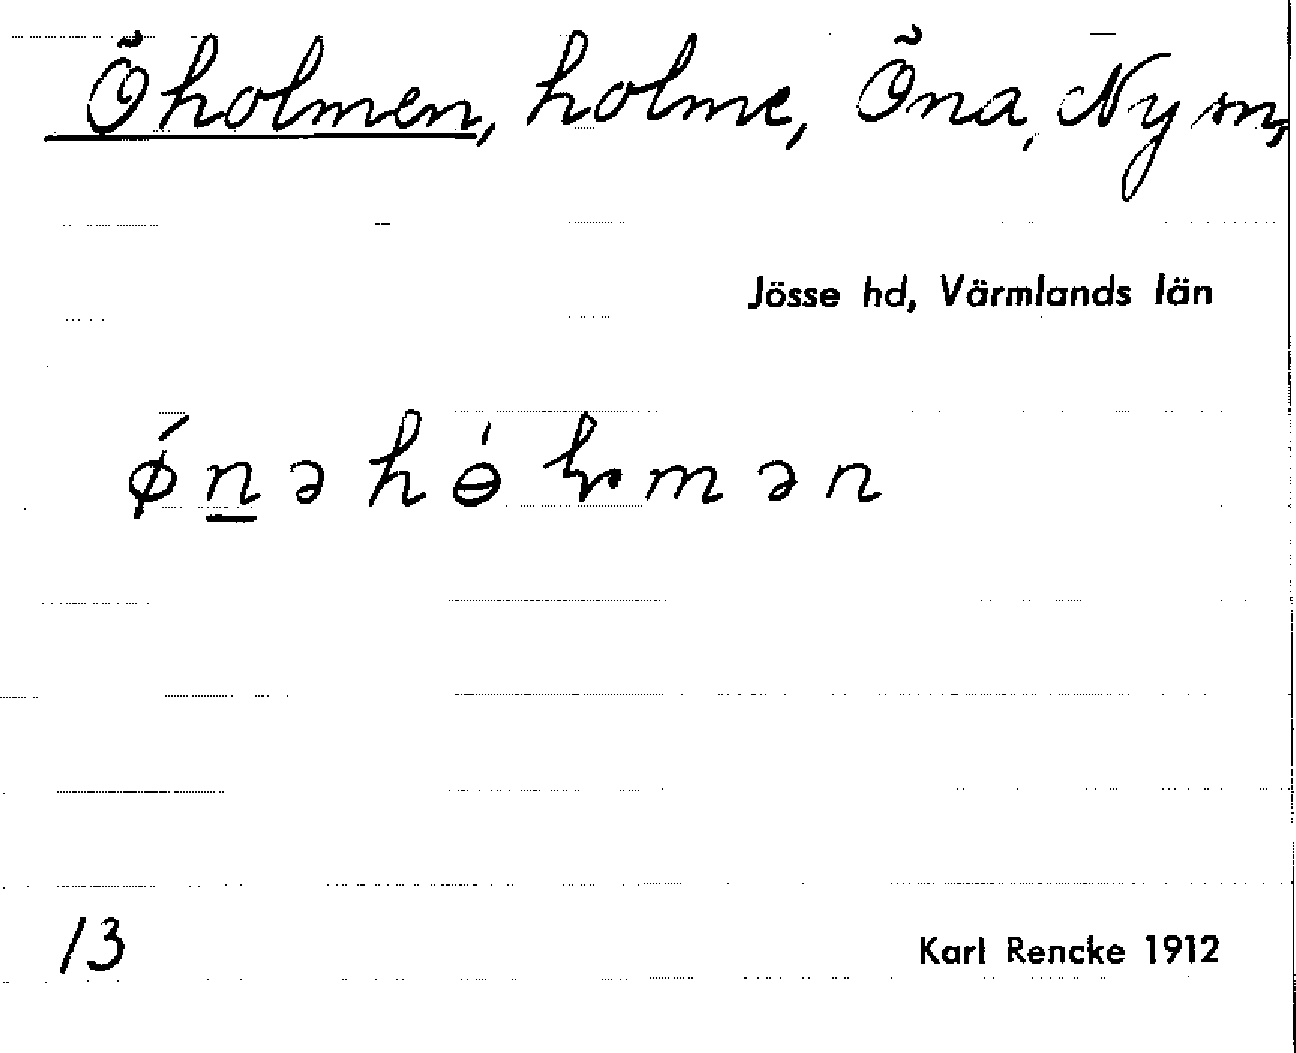 Öholmen, holme, Öna, Ny sn,
Jösse hd, Värmlands län
ǿn̲əhɵ́lmən
13
Karl Rencke 1912